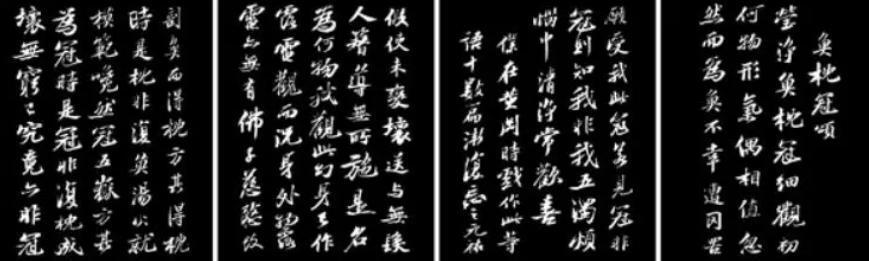 魚枕冠頌
瑩淨魚枕冠細觀初
何物形氣偶相值忽
然而為魚不幸遭网罟
剖魚而得枕方其得枕
時是枕非復魚湯火就
模範巉然冠五嶽方其
為冠時是冠非復枕成
壞無窮已究竟亦非冠
假使未變壞送與無髮
人簪導無所施是名
為何物我觀此幻身已作
露電觀而況身外物露
電亦無有佛子慈愍故
願受我此冠若見冠非
冠則知我非我五濁煩
惱中清淨常歡喜
僕在黃岡時戲作此等
語十數篇漸復忘之元祐